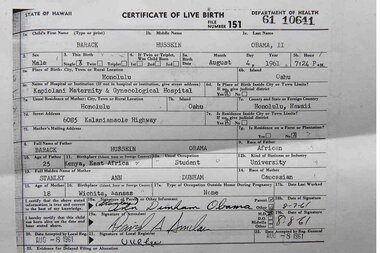 STATE OF HAWAII
CERTIFICATE OF LIVE BIRTH
DEPARTMENT OF HEALTH
FILE NUMBER 151 61 10641
1a. Child's First Name (Type or print)
1b. Middle Name
1c. Last Name
BARACK HUSSEIN OBAMA, II
2. Sex
3. This Birth
4. If Twin or Triplet, Was Child Born
5a. Birth Date
Month Day Year
5b. Hour
Male
Single Twin Triplet
1st 2nd 3rd
August 4, 1961 7:24 P.M.
6a. Place of Birth: City, Town or Rural Location
6b. Island
Honolulu Oahu
6c. Name of Hospital or Institution (If not in hospital or institution, give street address)
6d. Is Place of Birth Inside City or Town Limits?
If no, give judicial district
Kapiolani Maternity & Gynecological Hospital
Yes No
7a. Usual Residence of Mother: City, Town or Rural Location
7b. Island
7c. County and State or Foreign Country
Honolulu Oahu Honolulu, Hawaii
7d. Street Address
7e. Is Residence Inside City or Town Limits?
If no, give judicial district
6085 Kalanianaole Highway
Yes No
7f. Mother's Mailing Address
7g. Is Residence on a Farm or Plantation?
Yes No
8. Full Name of Father
9. Race of Father
BARACK HUSSEIN OBAMA African
10. Age of Father
11. Birthplace (Island, State or Foreign Country)
12a. Usual Occupation
12b. Kind of Business or Industry
25 Kenya, East Africa Student University
13. Full Maiden Name of Mother
14. Race of Mother
STANLEY ANN DUNHAM Caucasian
15. Age of Mother
16. Birthplace (Island, State or Foreign Country)
17a. Type of Occupation Outside Home During Pregnancy
17b. Date Last Worked
18 Wichita, Kansas None
I certify that the above stated information is true and correct to the best of my knowledge.
18a. Signature of Parent or Other Informant
Parent
Other
18b. Date of Signature
Ann Dunham Obama
I hereby certify that this child was born alive on the date and hour stated above.
19a. Signature of Attendant
M.D.
D.O.
Midwife
Other
19b. Date of Signature
8-8-61
20. Date Accepted by Local Reg.
AUG -8 1961
21. Signature of Local Registrar
22. Date Accepted by Reg. General
AUG -8 1961
23. Evidence for Delayed Filing or Alteration